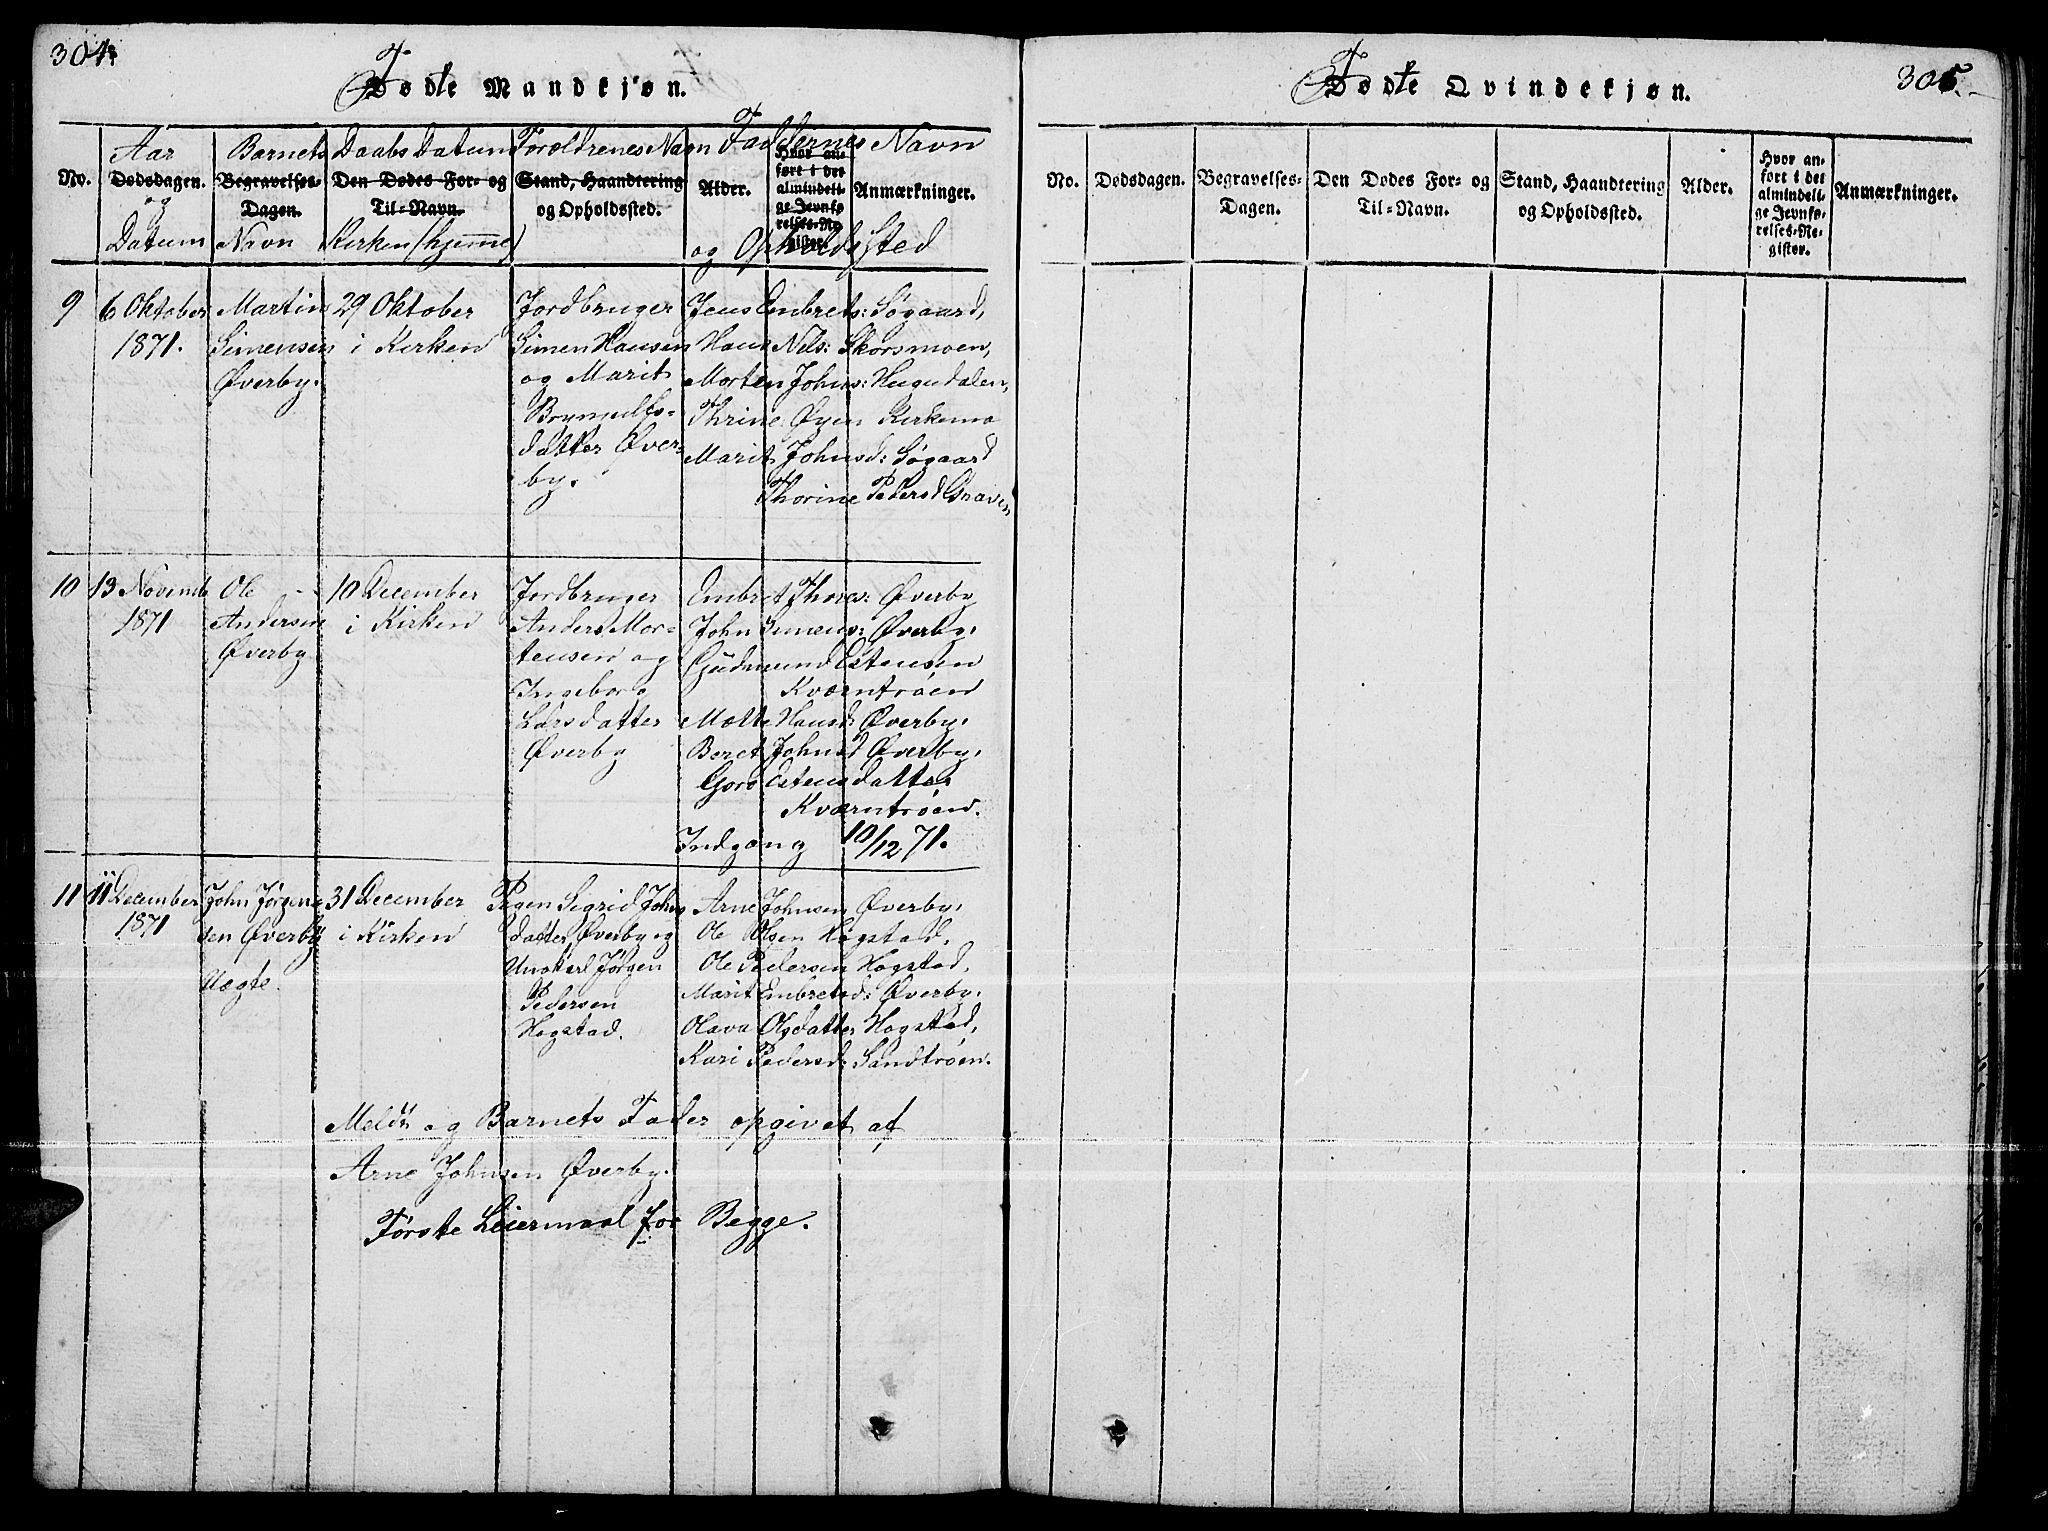 304.
Fødte Mandkjøn.
Aar Barnets Daabs Datum Foroldrenes Navn Faddernes Navn
No. Dødsdagen. Begravelses-Dagen. Den Dødes For- og Til-Navn. Stand, Haandtering og Opholdssted. Alder. Hvor anført i det almindelige Jevnførelses-Register. Anmærkninger.
og
Datum Navn Kirken (hjemme) og Opholdssted
9 6 Oktober Martin 29 Oktober Jordbruger Jens Embrets: Søgaard,
1871. Simensen i Kirken Simen Hansen Hans Nels: Skorsmoen,
Øverby. og Marit Morten Johns: Hugudalen,
Brynjulfs- Thrine Øyen Kirkemo
datter Øver- Marit Johnsd: Søgaard
by. Thorine Pedersd Graven
10 13 Novemb Ole 10 December Jordbruger Embret Thores: Øverby
1871 Andersen i Kirken Anders Mor- John Simens: Øverby,
Øverby tensen og Gudmund Estensen
Ingeborg Kværntrøen
Larsdatter Mette Hansd: Øverby,
Øverby Beret Johnsd Øverby,
Goro Estensdatter
Kværntrøen.
Indgang 10/12 71.
11 11 December John Jørgen- 31 December Pigen Sigrid Johns Arne Johnsen Øverby,
1871 sen Øverby i Kirken datter, Øverby og Ole Olsen Hogstad,
Uægte. Ungkarl Jørgen Ole Pedersen Hogstad,
Pedersen Marit Embretsd: Øverby,
Hogstad. Olava Olsdatter Hogstad,
Kari Pedersd: Sandtrøen.
Meldt og Barnets Fader opgivet af
Arne Johnsen Øverby.
Første Leiermaal for Begge.
305.
Fødte Qvindekjøn.
No. Dødsdagen. Begravelses-Dagen. Den Dødes For- og Til-Navn. Stand, Haandtering og Opholdssted. Alder. Hvor anført i det almindelige Jevnførelses-Register. Anmærkninger.